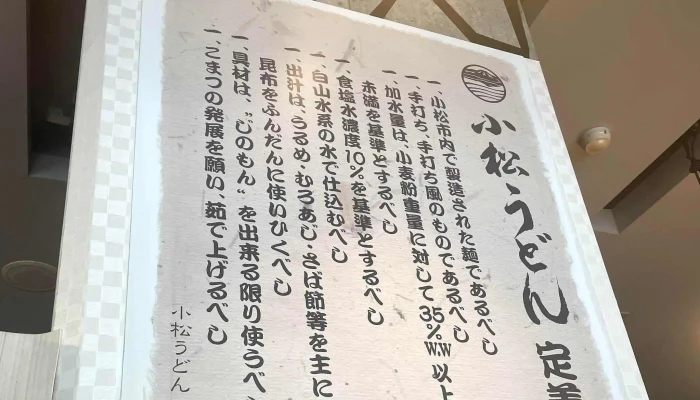 小松うどん 定義
一、小松市内で製造された麺であるべし
一、手打ち、手打ち風のものであるべし
一、加水量は、小麦粉重量に対して35%W.W以上
未満を基準とするべし
一、食塩水濃度10%を基準とするべし
一、白山水系の水で仕込むべし
一、出汁は、うるめ・むろあじ・さば節等を主に
昆布をふんだんに使いひくべし
一、具材は、“じのもん”を出来る限り使うべ
一、こまつの発展を願い、茹で上げるべし
小松うどん